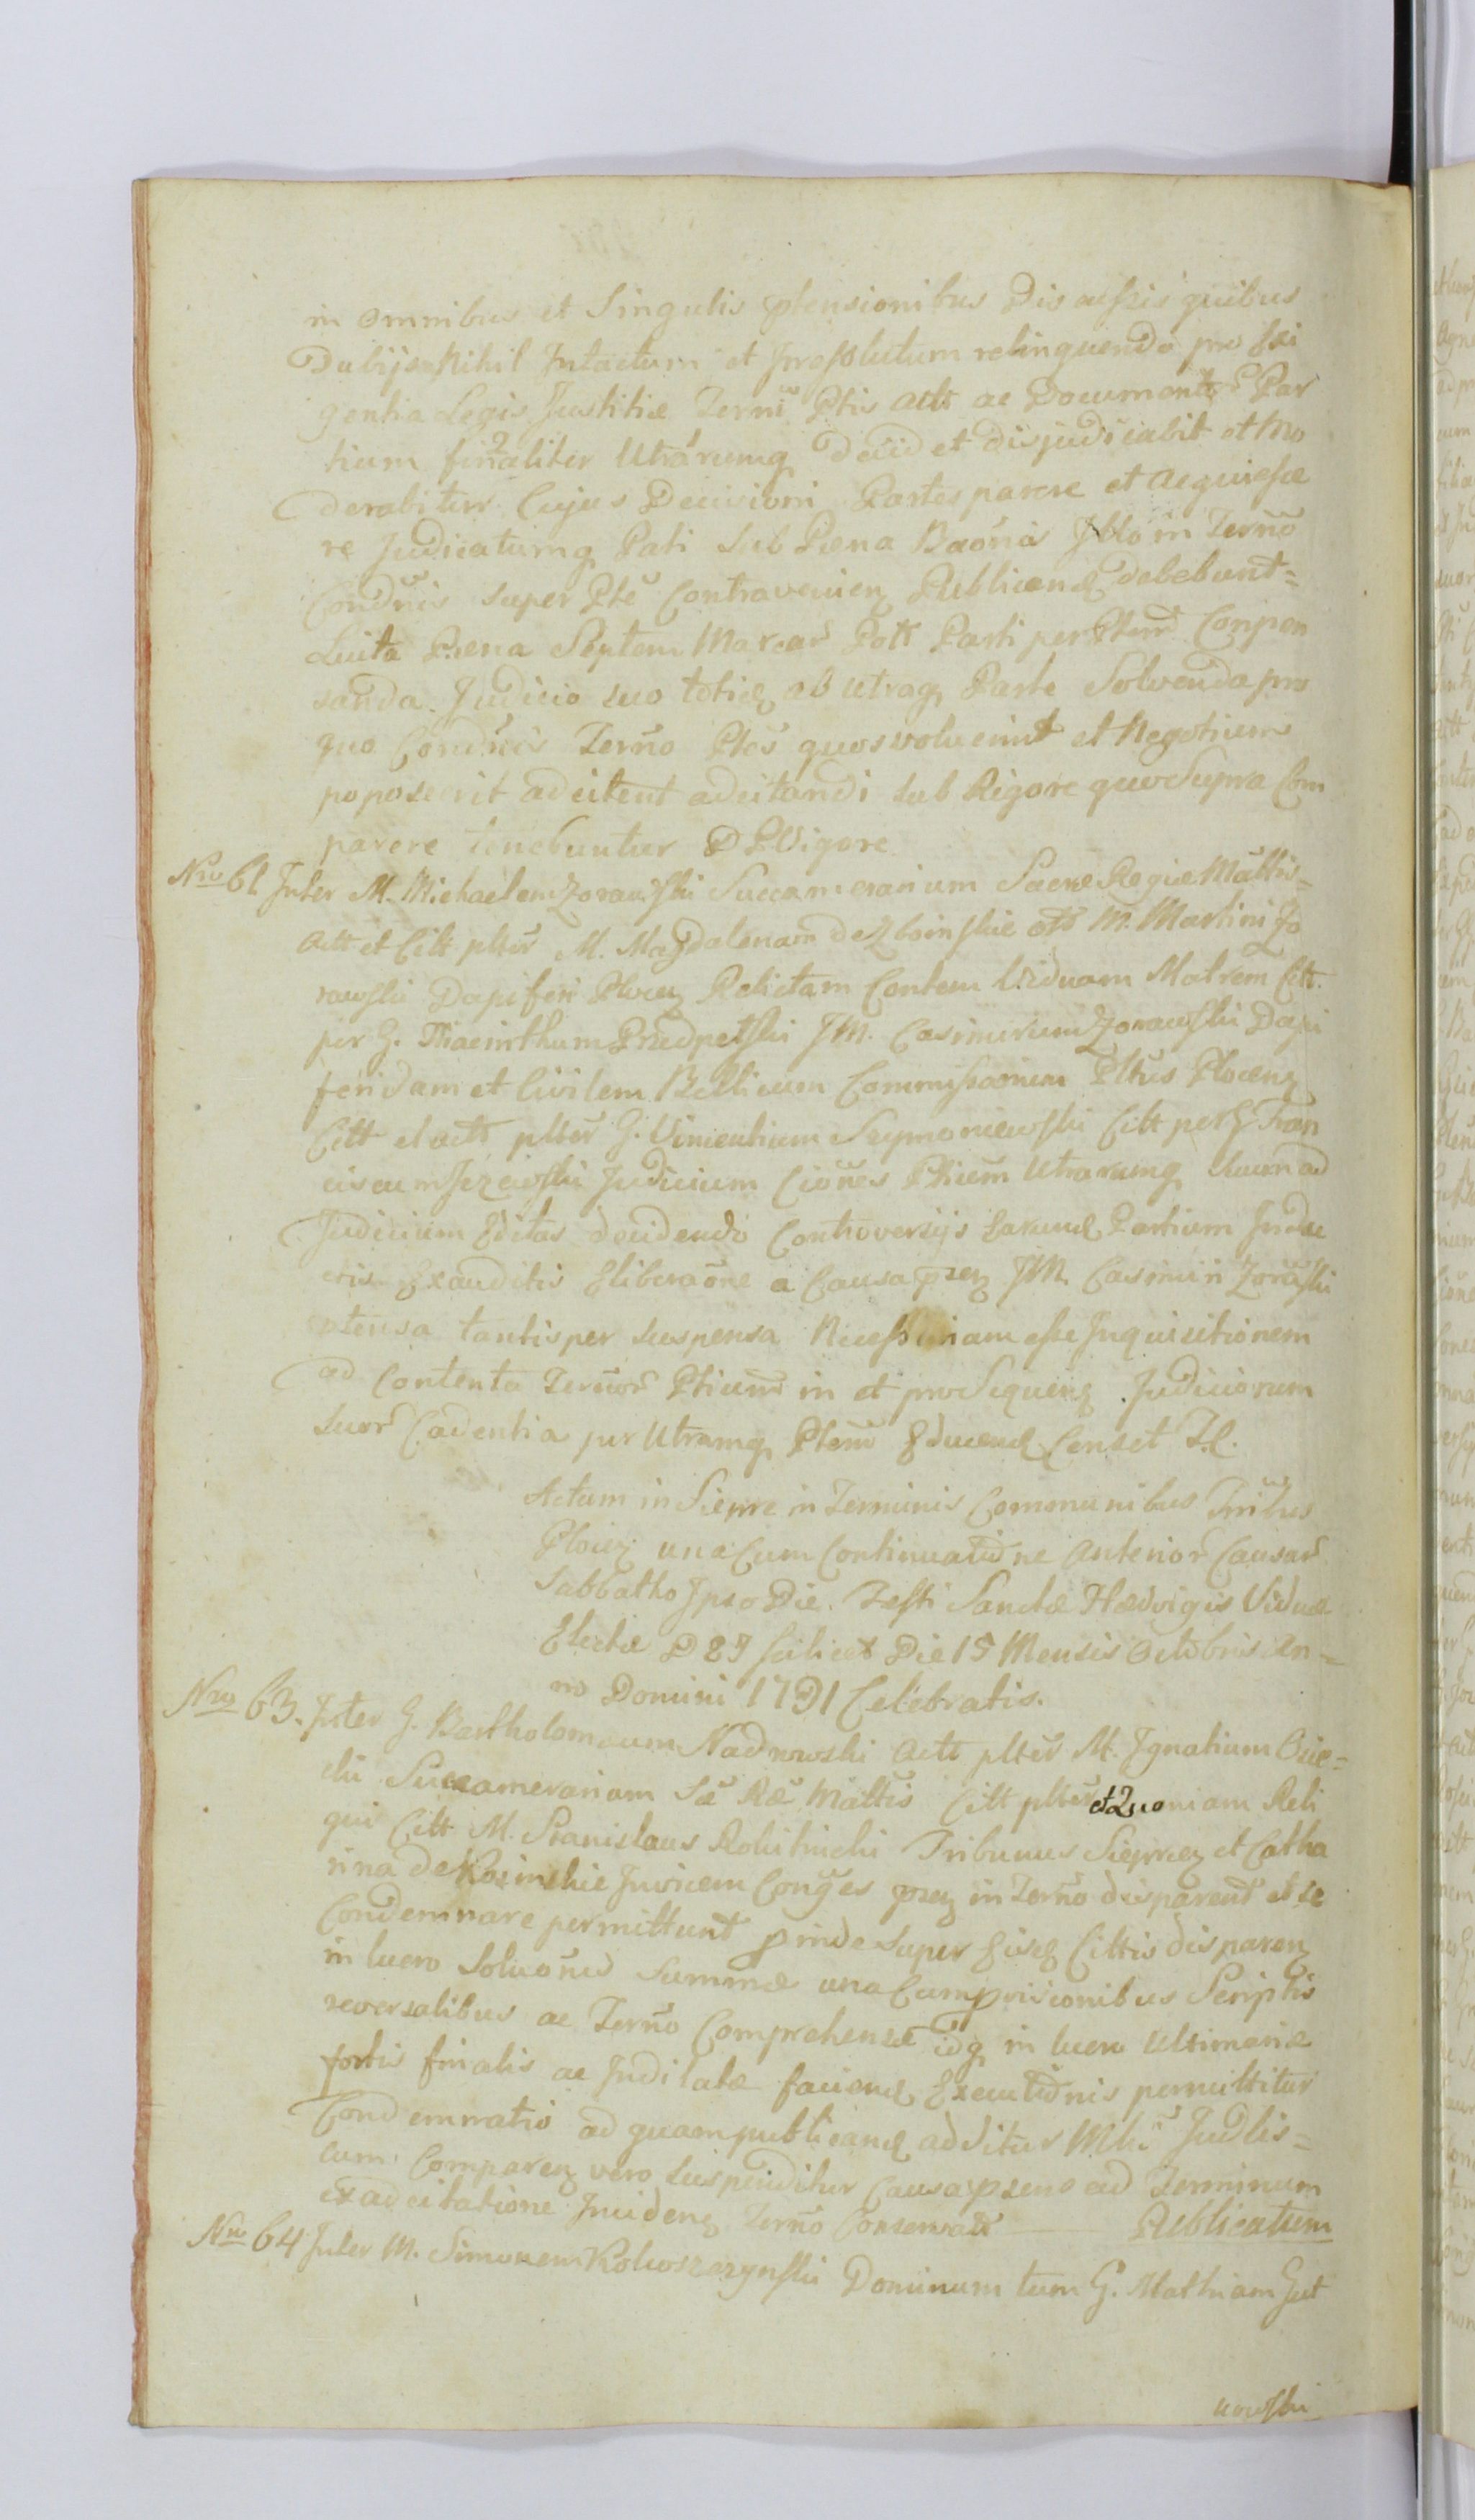 in omnibus et Singulis ptensionibus Discussis quibus
Dubijs Nihil Intactum et Iresolutum relinquendo pro Exi
gentia Legis Justitiæ Termi Ptis Actt ac Documentor Par
tium finaliter Utrarumq decid et disjudicabit et Mo
derabitur Cujus Decisioni Partes parere et acquiesce
re Judicatumq Pati Sub Pæna Baonis Iblo in Termo
Condnis super Pte Contravenien Publicand debebunt=
Luita Pæna Septem Marcar Poll Parti per Ptem Conpen
sanda. Judicio suo toties ab utraq Parte Solvenda pro
quo Condnis Termo Ptes quos voluerint et Negotium
poposcerit adcitent adcitandi sub Rigore quo Supra Com
parere tenebuntur D P Vigore
Nro 61 Inter M. Michaelem Zorawski Succamerarium Sacræ Regiæ Mattis=
Actt et Citt plter M. Magdalenam de Zboinskie M. Martini Zo
rawski Dapiferi Plocen Relictam Contem Viduam Matrem Citt.
per G. Hiacinthum JM. Casimirum Zorawski Dapi
feridam et Civilem Bellicum Commissarium Pltus Plocen
Citt et actt plter G. Vincentium Szymoniewski Citt per G Fran
ciscum Jezewski Judicium Ciones Ptium Utrarumq suum ad
Judicium Editas decidendo Controversijs Earund Partium Indu
ctis Exauditis Eliberaone a Causa psen JM. Casimiri Zorawski
tantisper suspensa Necessariam esse Inquisitionem
ad Contenta Termor Ptium in et pro Sequen Judiciorum
suor Cadentia per Utramq Ptem Educend Censet I.C.
Actum in Sierpre in Terminis Communibus Trribus
Plocen una Cum Continuatione Anterior Causar
Sabbatho Ipso Die. Festi Sanctæ Hedvigis Viduæ
Electæ D 87 scilicet Die 15 Mensis Octobris An=
no Domini 1791 Celebratis.
Nro 63. Inter G. Bartholomæum Nadrowski Actt plter M. Ignatium Osie=
cki Succamerariam Sæ Ræ Mattis Citt plter et Quoniam Reli
qui Citt M. Stanislaus Rokitnicki Tribunus Sierpcen et Catha
rina de Kosinskie Invicem Conges psen in Termo disparent et se
Condemnare permittunt pinde super Eisd Cittis disparen
in lucro Soluonis Summæ una Cum pvisionibus Scriptis
reversalibus ac Termo Comprehensæ idq in lucro Ultimariæ
fortis finalis ac Judicatæ faciend Executionis permittitur
Condemnatio ad quam publicand additur Mlis Judlis=
cum Comparen vero suspenditur Causa psens ad Terminum
ex adcitatione Inciden Termo Conservato — Publicatum
Nro 64 Inter M. Simonem Kokoszczynski Dominum tum G. Mathiam Gut
kowski